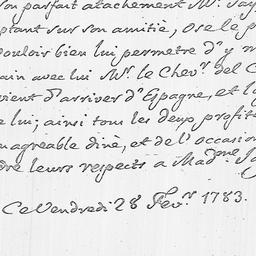 son parfait atachement Mr. Jay
ptant sur son amitié, Ose le p
ouloir bien lui permetre d'y m
ain avec lui Mr. le Chevr. del C
vient d'arriver d'Epagne, et l
e lui; ainsi tous les deux profite
nagreable dinè, et de l'occasio
dre leurs respects a Madme. Ja
Ce Vendredi 28 Fevr. 1783.